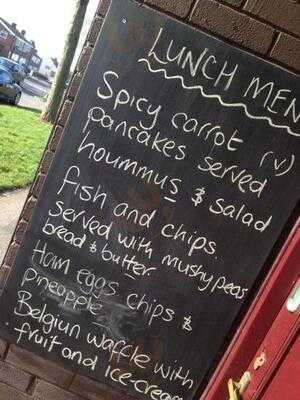 LUNCH MENU
Spicy carrot (v)
pancakes served
hoummus & salad
Fish and chips.
Served with mushy peas
bread & butter.
Ham eggs chips &
pineapple.
Belgian waffle with
fruit and ice-cream